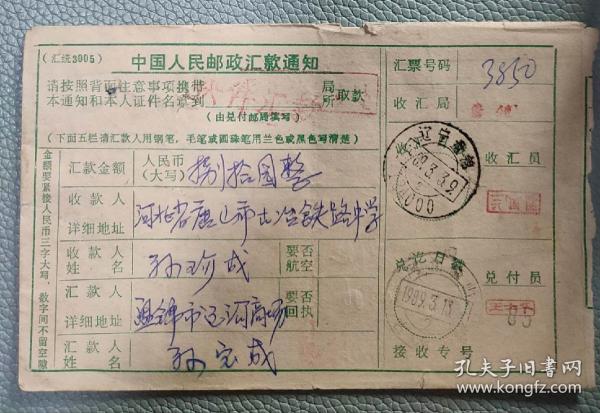 (汇统3005)
中国人民邮政汇款通知
请按照背面注意事项携带
本通知和本人证件名章到
局
所
取款
(由兑付邮局填写)
(下面五栏请汇款人用钢笔,毛笔或圆珠笔用兰色或黑色写清楚)
金额要紧接人民币三字大写,数字间不留空隙
汇款金额
人民币
(大写)
捌拾圆整
收款人
详细地址
河北省唐山市古冶铁路中学
收款人
姓名
孙珍成
要否
航空
汇款人
详细地址
盘锦市辽河商场
要否
回执
汇款人
姓名
孙完成
汇票号码
3850
收汇局
收汇员
辽宁盘锦
1989.3.9
兑讫日戳
1989.3.13
兑付员
接收专号
孔夫子旧书网
www.kongfz.com